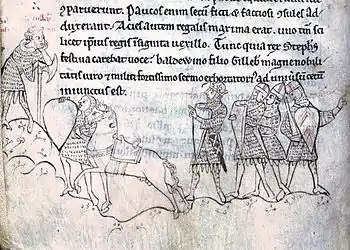 paruerunt. Paucos enim secū ficti & factiosi ꝯsules ad
duxerant. Acies autem regalis maxima erat. uno tm̄ sci
licet ip̄ius regis insignita uexillo. Tunc quia rex Stephs
festiua carebat uoce: baldewino filio Gilleb magne nobili
tatis uiro & militi fortissimo sermo exhortatorī ad uniūsū cetū
iniunctus est.